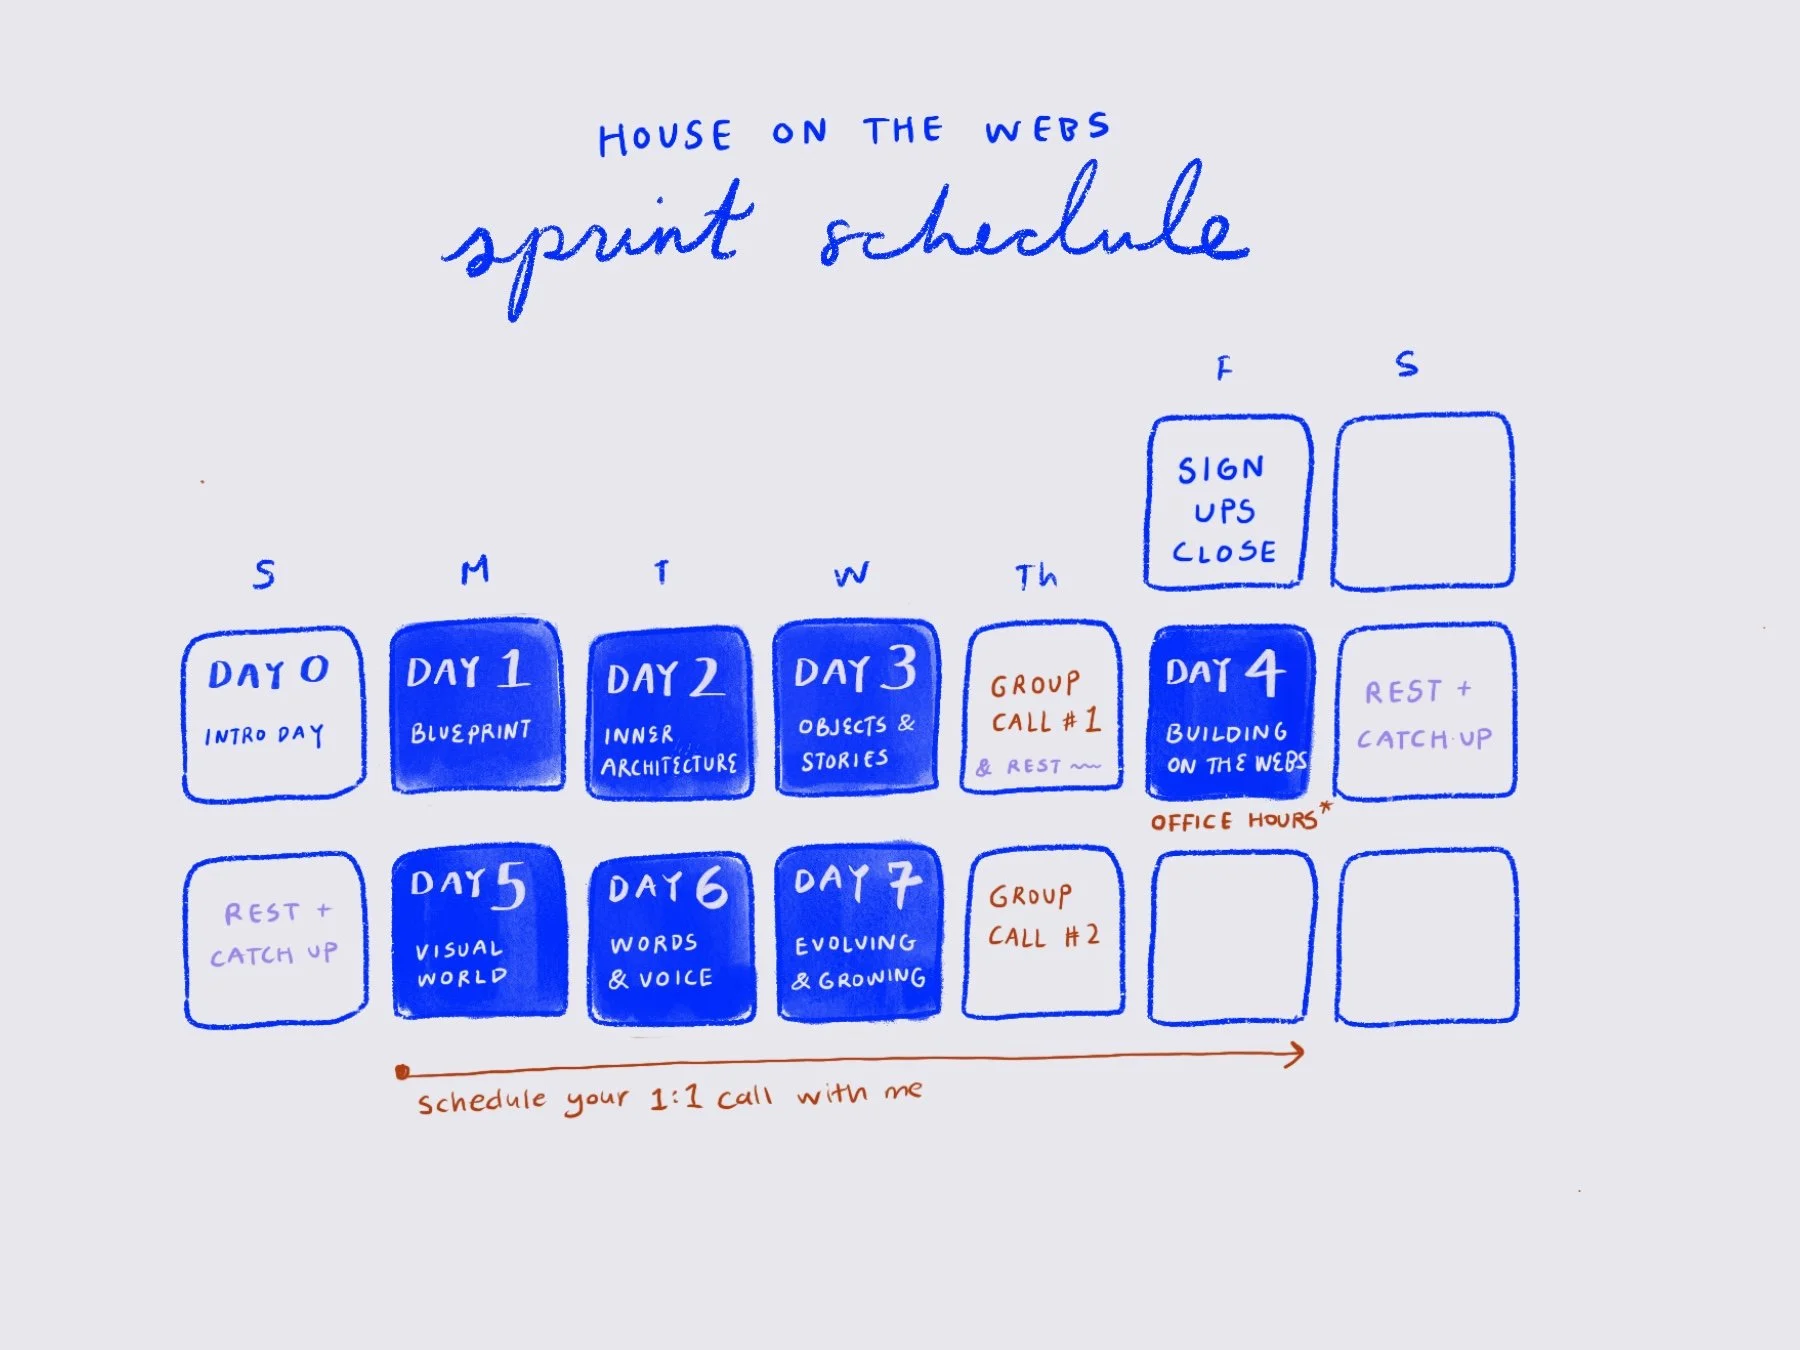 HOUSE ON THE WEBS
sprint schedule
F
S
SIGN
UPS
CLOSE
S
M
T
W
Th
DAY 0
INTRO DAY
DAY 1
BLUEPRINT
DAY 2
INNER
ARCHITECTURE
DAY 3
OBJECTS &
STORIES
GROUP
CALL #1
& REST ~~
DAY 4
BUILDING
ON THE WEBS
OFFICE HOURS*
REST +
CATCH UP
REST +
CATCH UP
DAY 5
VISUAL
WORLD
DAY 6
WORDS
& VOICE
DAY 7
EVOLVING
& GROWING
GROUP
CALL #2
schedule your 1:1 call with me